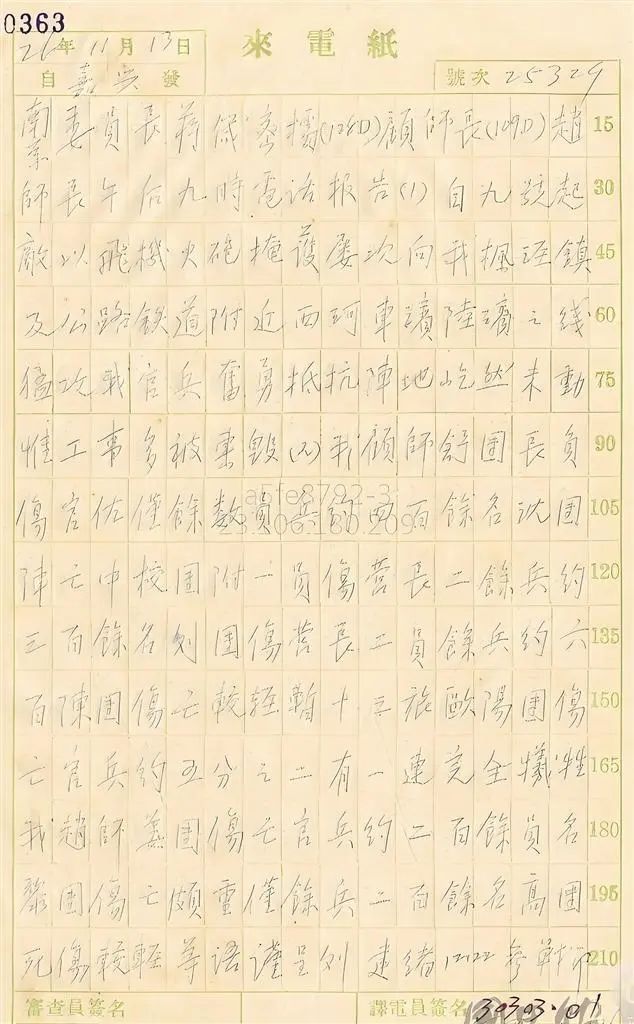 0363
來電紙
26年11月13日
自嘉興發
號次 25329
南京委員長蔣保密據(128D)顧師長(109D)趙 15
師長午后九時電話報告(1)自九號起 30
敵以飛機火砲掩護屡次向我楓涇鎮 45
及公路鉄道附近西珂車瀆陸瀆之线 60
猛攻我官兵奮勇抵抗陣地屹然未動 75
惟工事多被毀(2)我顧師舒團長負 90
傷官佐僅餘数員兵四百餘名沈團 105
陣亡中校團附一員傷營長二餘兵約 120
三百餘名刘團傷营長二員餘兵約六 135
百陳團傷亡較轻暫十三旅歐陽團傷 150
亡官兵約五分之二有一連完全犧牲 165
我趙師龔團傷亡官兵約二百餘員名 180
團傷亡頗重僅餘兵二百餘名高團 195
死傷較輕等語謹呈刘建绪 210
審查員簽名
譯電員簽名